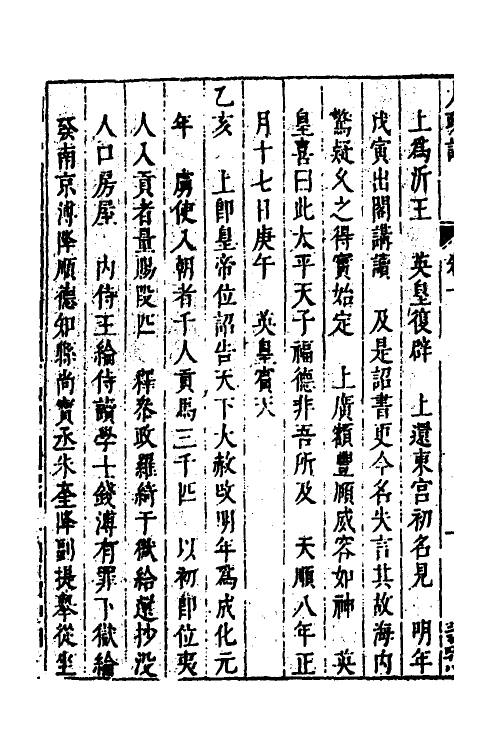 上爲沂王　英皇復辟　上還東宮初名見　明年
戊寅出閣講讀　及是詔書更今名失言其故海内
驚疑久之得實始定　上廣額豐頤威容如神　英
皇喜曰此太平天子福德非吾所及　天順八年正
月十七日庚午　英皇賓天
乙亥　上卽皇帝位詔告天下大赦改明年爲成化元
年　虜使入朝者千人貢馬三千匹　以初卽位夷
人入貢者量賜段匹　釋叅政羅綺于獄給還抄沒
人口房屋　内侍王綸侍讀學士錢溥有罪下獄綸
發南京溥降順德知縣尚寳丞朱奎降副提舉從坐